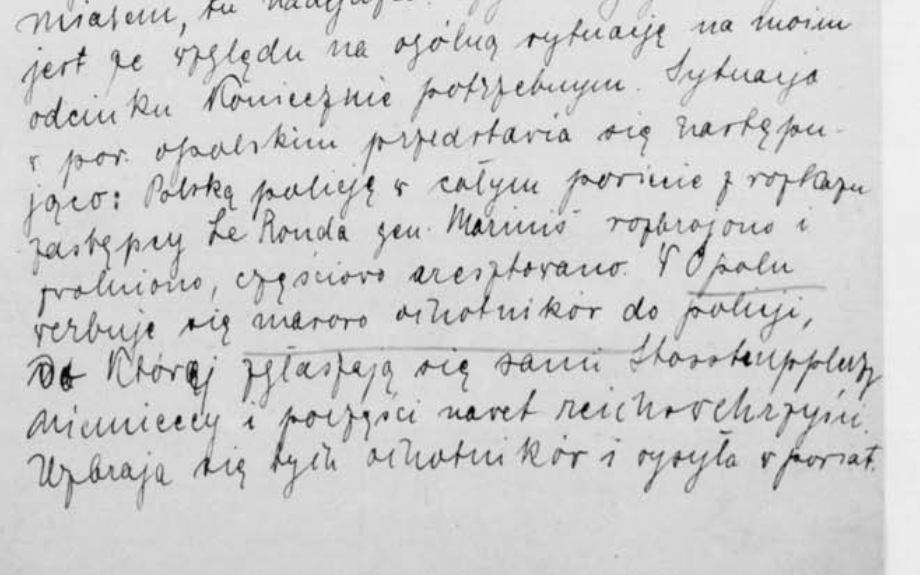 miałem, tu
jest ze względu na ogólną sytuację na moim
odcinku koniecznie potrzebnym. Sytuacja
w pow. opolskim przedstawia się następu-
jąco: Polską policję w całym powiecie z rozkazu
zastępcy Le Ronda gen. Marinis rozbrojono i
zwolniono, częściowo aresztowano. W Opolu
werbuje się masowo ochotników do policji,
Do której zgłaszają się sami Stosstrupplerzy
niemieccy i poczęści nawet reichswehrzyści.
Uzbraja się tych ochotników i wysyła w powiat.